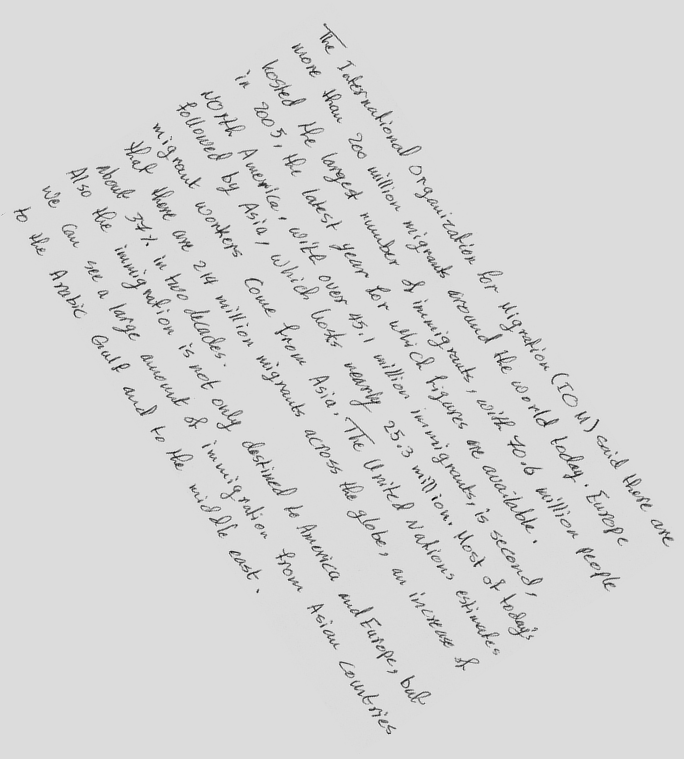 The International Organization for Migration (IOM) said there are
more than 200 million migrants around the world today. Europe
hosted the largest number of immigrants, with 70.6 million people
in 2005, the latest year for which figures are available.
North America, with over 45.1 million immigrants, is second,
followed by Asia, which hosts nearly 25.3 million. Most of today's
migrant workers come from Asia. The United Nations estimates
that there are 214 million migrants across the globe, an increase of
about 37% in two decades.
Also the immigration is not only destined to America and Europe, but
we can see a large amount of immigration from Asian countries
to the Arabic Gulf and to the middle east.